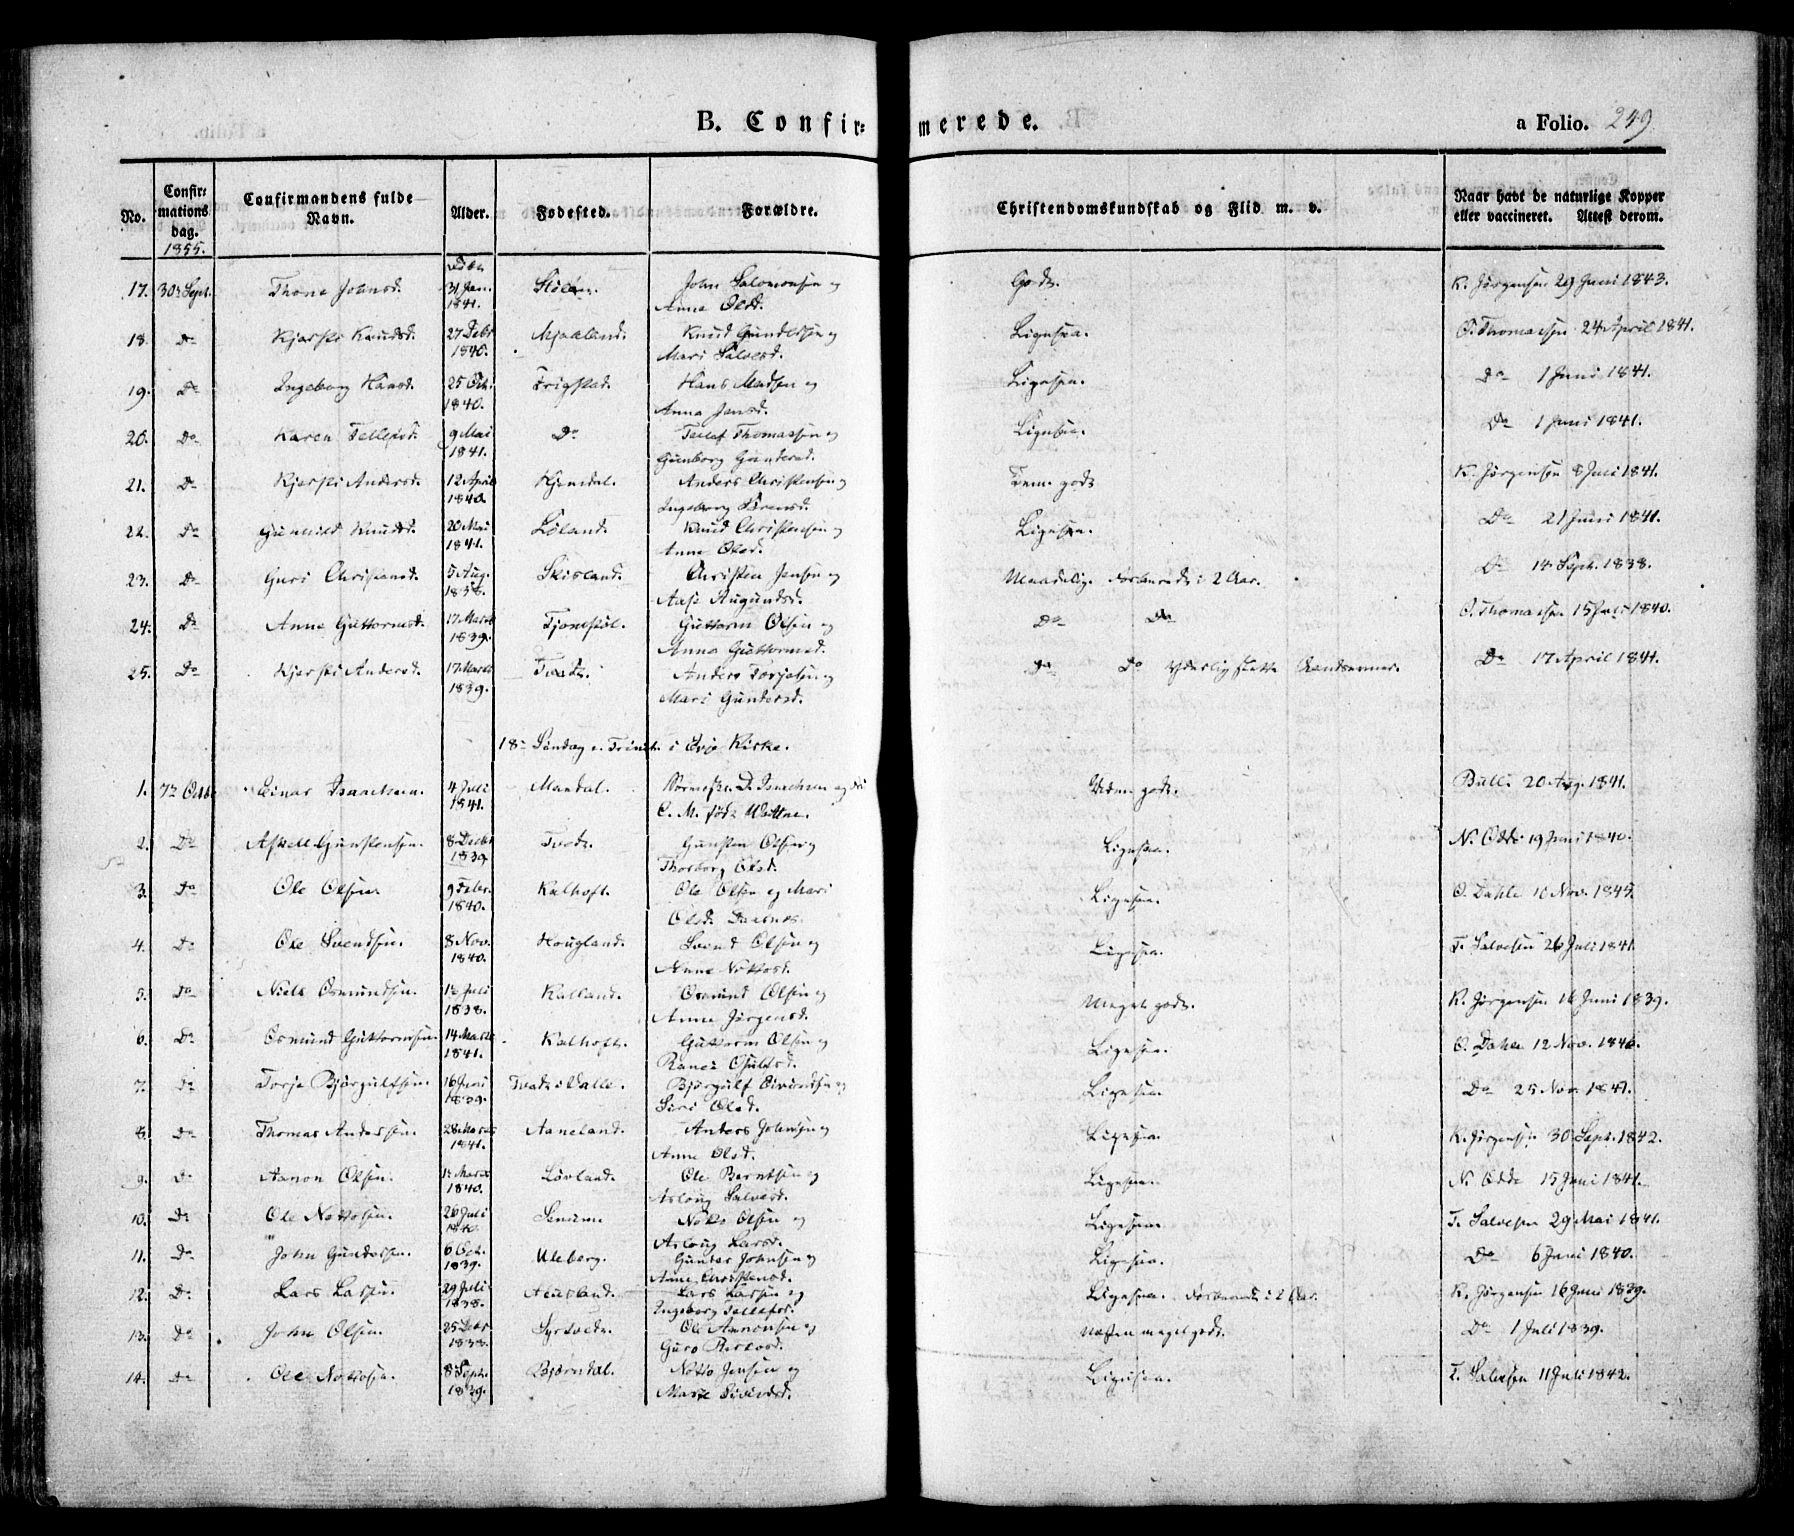 B. Confir= merede. a Folio. 249
No. Confir= mations dag. 1855. Confirmandens fulde Navn. Alder. Fødested. Forældre. Christendomskundskab og Flid m. v. Naar havt de naturlige Kopper eller vaccineret. Attest derom.
17. 30te Sept. Thone Johnsd. 31 Jan. 1841. John Salomonsen og Anne Olsd. Godt. K. Jørgensen 29 Juni 1843.
18. Do Kjersti Knudsd. 27 Debr 1840. Mjaaland. Knud Gundersen og Mari Salvesd. Ligesaa. O. Thomassen 24 April 1841.
19. Do Ingeborg Hansd. 25 Oct. 1840. Frigstad. Hans Madsen og Anna Jensd. Ligesaa. Do 1 Juni 1841.
20. Do Karen Tellefsd. 9 Mai 1841. Do Tellef Thomassen og Gunborg Gundersd. Ligesaa. Do 1 Juni 1841.
21. Do Kjersti Andersd. 12 April 1840. Anders Christensen og Ingeborg Sørensd. Tem. godt K. Jørgensen 8 Juli 1841.
22. Do Gunvild Knudsd. 20 Mai 1841. Løland. Knud Christensen og Anne Olsd. Ligesaa. Do 21 Juni 1841.
23. Do Guri Christensd. 5 Aug. 1838. Skisland. Christen Jensen og Aase Augundsd. Maadelig. Forberedt i 2 Aar. Do 14 Sept. 1838.
24. Do Anne Guttormsd. 17 Marts 1839. Guttorm Olsen og Anna Guttormsd. Do Do O. Thomassen 15 Juli 1840.
25. Do Kjersti Andersd. 17 Marts 1839. Tvedt. Anders Torjesen og Mari Gundersd. Do Do Yderlig slette Aandsevner. Do 17 April 1841.
18de Søndag e. Trinit. i Evje Kirke.
1. 7de Octbr Einar Isaachsen. 4 Juli 1841. Mandal. D. Isachsen og C. M. født Wattne. Udm. godt. Bull 20 Aug. 1841.
2. Do Askell Gunstensen. 8 Decbr 1839. Tvedt. Gunsten Olsen og Thorborg Olsd. Ligesaa. N. Odde 19 Juni 1840.
3. Do Ole Olsen. 9 Febr. 1840. Kalhoft. Ole Olsen og Mari Olsd. Ligesaa. O. Dahle 10 Nov. 1845.
4. Do Ole Svendsen. 8 Nov. 1840. Hougland. Svend Olsen og Anne Nottosd. Ligesaa. T. Salvesen 26 Juli 1841.
5. Do Niels Osmundsen. Juli 1838. Kalland. Osmund Olsen og Anne Jørgensd. Meget godt. K. Jørgensen 16 Juni 1839.
6. Do Osmund Guttormsen. 14 Marts 1841. Kalhoft. Guttorm Olsen og Ligesaa. O. Dahle 12 Nov. 1846.
7. Do Torje Bjørgulfsen. 16 Juni 1839. Tvedt i Valle. Bjørgulf Eivindsen og Siri Olsd. Ligesaa. Do 25 Nov. 1841.
8. Do Thomas Andersen. 28 Marts 1841. Aaneland. Anders Johnsen og Anne Olsd. Ligesaa. K. Jørgensen 30 Sept. 1842.
9. Do Aanon Olsen. Marts 1840. Løvland. Ole Berntsen og Asloug Salvesd. Ligesaa. N. Odde 15 Juni 1841.
10. Do Ole Nottosen. 26 Juli 1840. Senum Notto Olsen og Asloug Larsd. Ligesaa. T. Salvesen 29 Mai 1841.
11. Do John Gundersen. 6 Oct. 1839. Uleberg. Gunder Johnsen og Anne Christensd. Ligesaa. Do 6 Juni 1840.
12. Do Lars Larsen. 29 Juli 1838. Lars Larsen og Ingeborg Tellefsd. Ligesaa. Forberedt i 2 Aar. K. Jørgensen 16 Juni 1839.
13. Do John Olsen. 25 Debr 1838. Syrtvedt. Ole Aanonsen og Guro Næsten meget godt. Do 1 Juli 1839.
14. Do Ole Nottosen. 8 Septb. 1839. Bjørndal. Notto Jensen og Ligesaa. T. Salvesen 11 Juli 1842.